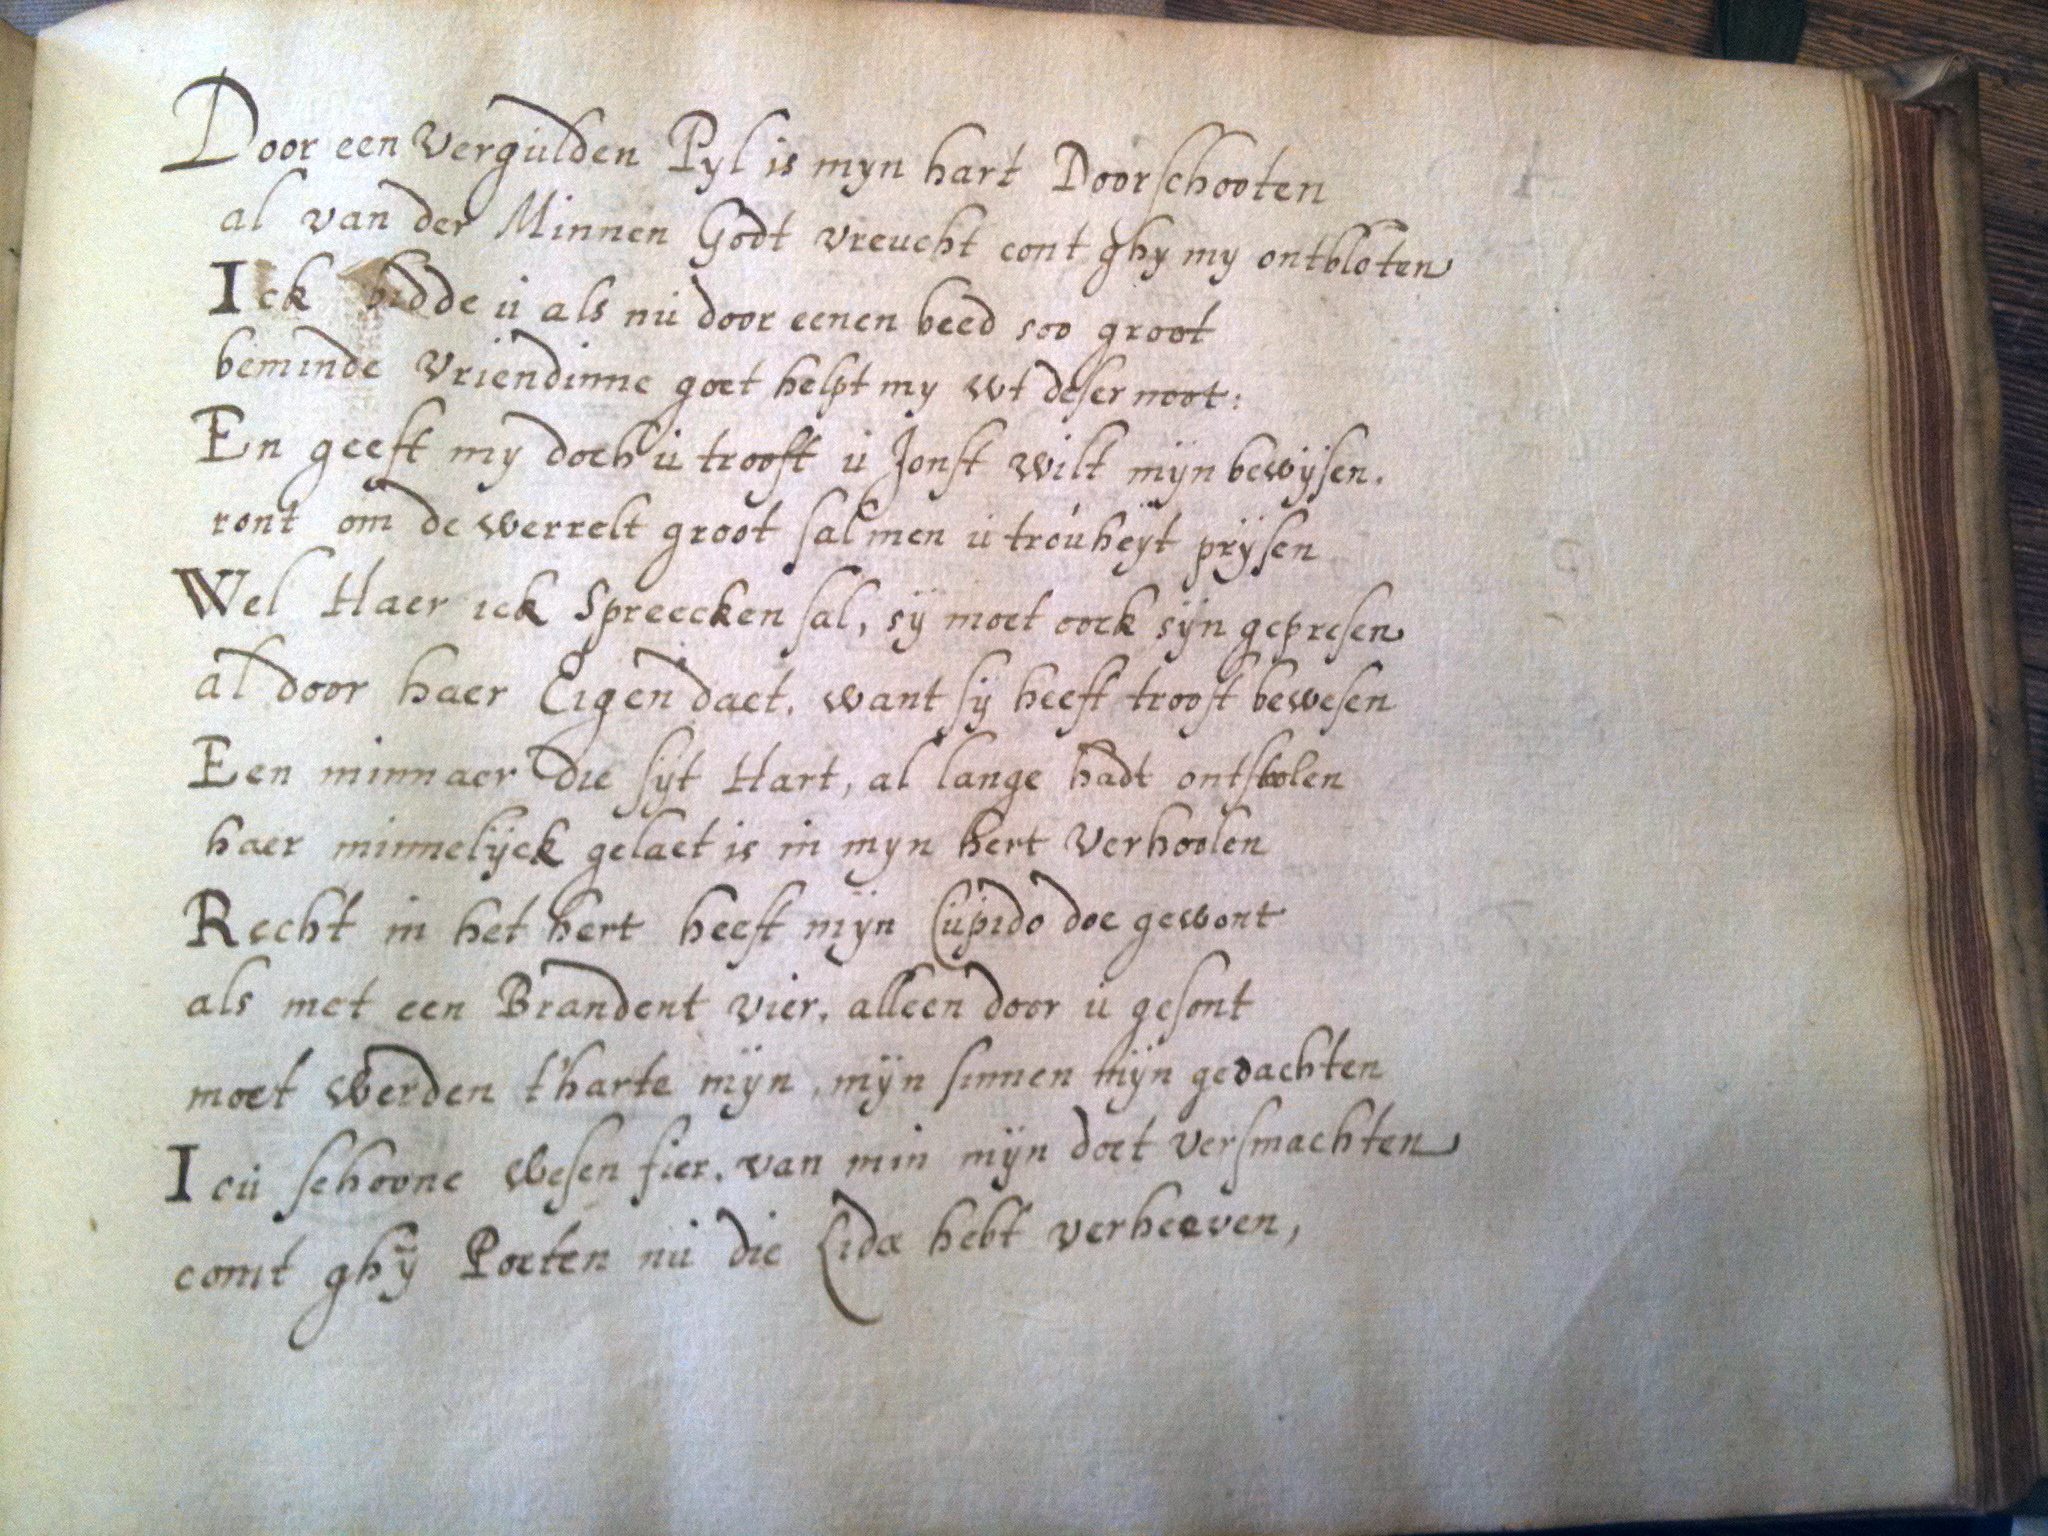 Door een vergulden Pyl is myn hart Doorschooten
al van der Minnen Godt vreucht cont ghy my ontbloten
Ick bidde u als nu door eenen beed soo groot
beminde vriendinne goet helpt my wt deser noot:
En geeft my doch u troost u Jonst wilt mijn bewijsen.
ront om de werrelt groot salmen u trouheijt prijsen
Wel Haer ick Spreecken sal, sij moet oock sijn gepresen
al door haer Eigen daet, want sij heeft troost bewesen
Een minnaer die sijt Hart, al lange hadt ontstolen
haer minnelijck gelaet is in myn hert verhoolen
Recht in het hert heeft mijn Cupido doe gewont
als met een Brandent vier, alleen door u gesont
moet werden t'harte mijn, mijn sinnen mijn gedachten
I cu schoone wesen fier, van min mijn doet versmachten
comt ghij Poeten nu die Lidae hebt verheeven,